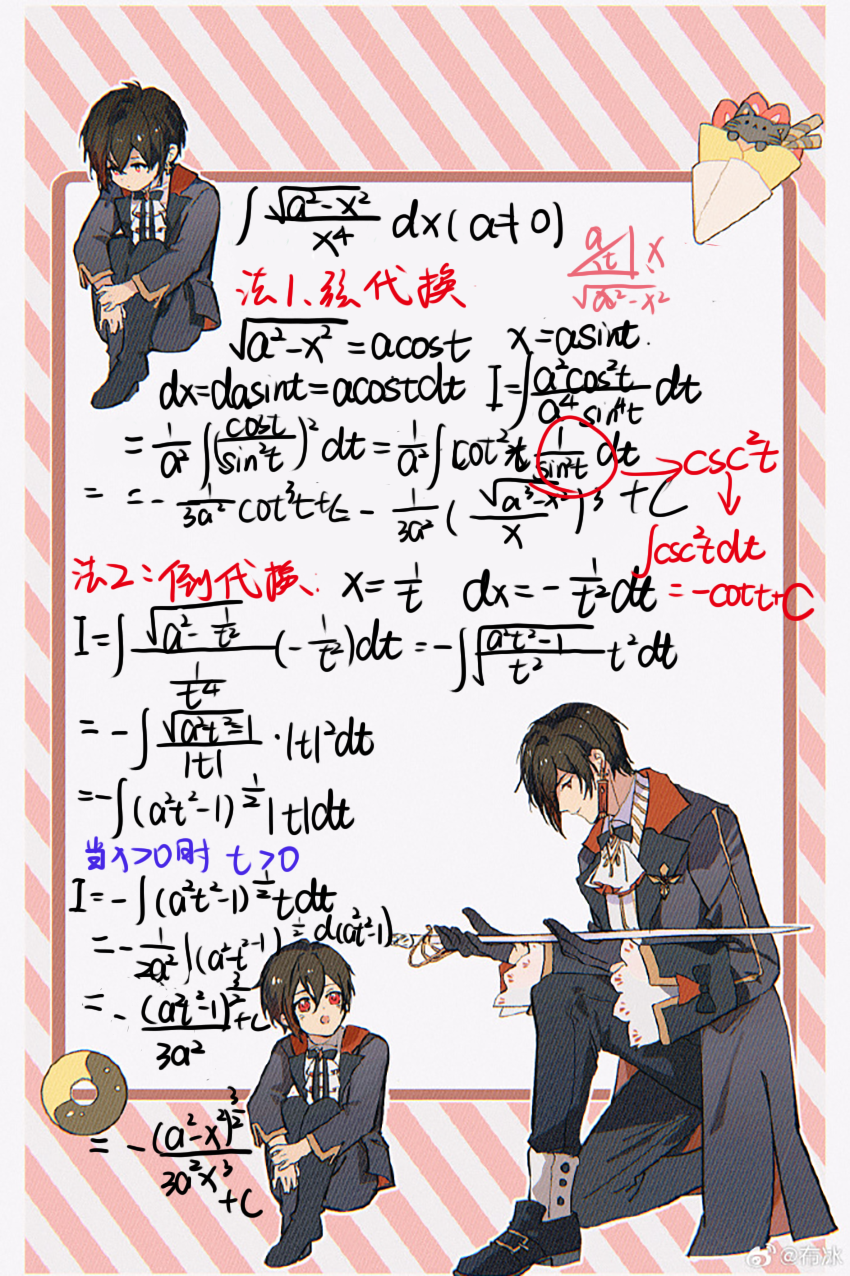 ∫ √(a²-x²)/x⁴ dx (a≠0)
a t x √(a²-x²)
法1、弦代换
√(a²-x²) = acost x=asint.
dx=dasint=acostdt I=∫ a²cos²t/(a⁴sin⁴t) dt
= 1/a² ∫(cost/sin²t)² dt = 1/a² ∫cot²t 1/sin²t dt → csc²t
= =- 1/(3a²) cot³t+C - 1/(3a²) (√(a³-x²)/x)³ +C
∫csc²tdt
= -cott+C
法2：倒代换. x=1/t dx=-1/t² dt
I=∫ √(a²-1/t²)/(1/t⁴) (-1/t²)dt = -∫√((a²t²-1)/t²) t²dt
= -∫ √(a²t²-1)/|t| ·|t|²dt
=-∫(a²t²-1)^(1/2) |t|dt
当x>0时 t>0
I=-∫(a²t²-1)^(1/2) tdt
=-1/(2a²) ∫(a²t²-1)^(1/2) d(a²t²-1)
= -(a²t²-1)^(3/2)/(3a²) +C
= -(a²-x²)^(3/2)/(3a²x³) +C
@布冰